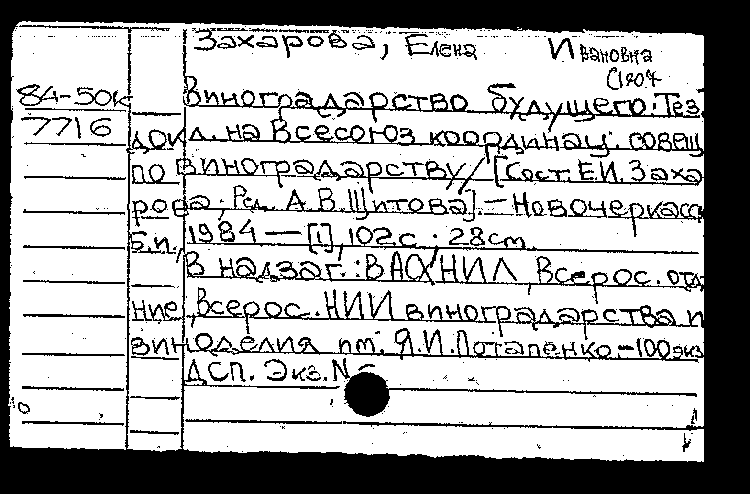 Захарова, Елена Ивановна
Сост.
84-50к Виноградарство будущего: Тез.
7716 докл. на Всесоюз координац. совещ
по виноградарству/ [Сост. Е.И. Заха
рова; Ред. А.В. Щитова]. — Новочеркасск
Б.и., 1984 — [1], 102 с.; 28 см.
В надзаг.: ВАСХНИЛ, Всерос. отд
ние, Всерос. НИИ виноградарства и
виноделия им. Я.И. Потапенко. - 100 экз
ДСП. Экз. №